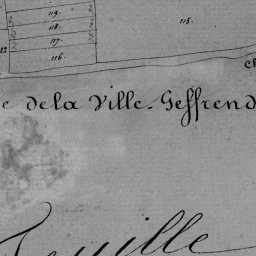 119.
118.
115.
117.
12
116.
e de la Ville-Geffrend
feuille